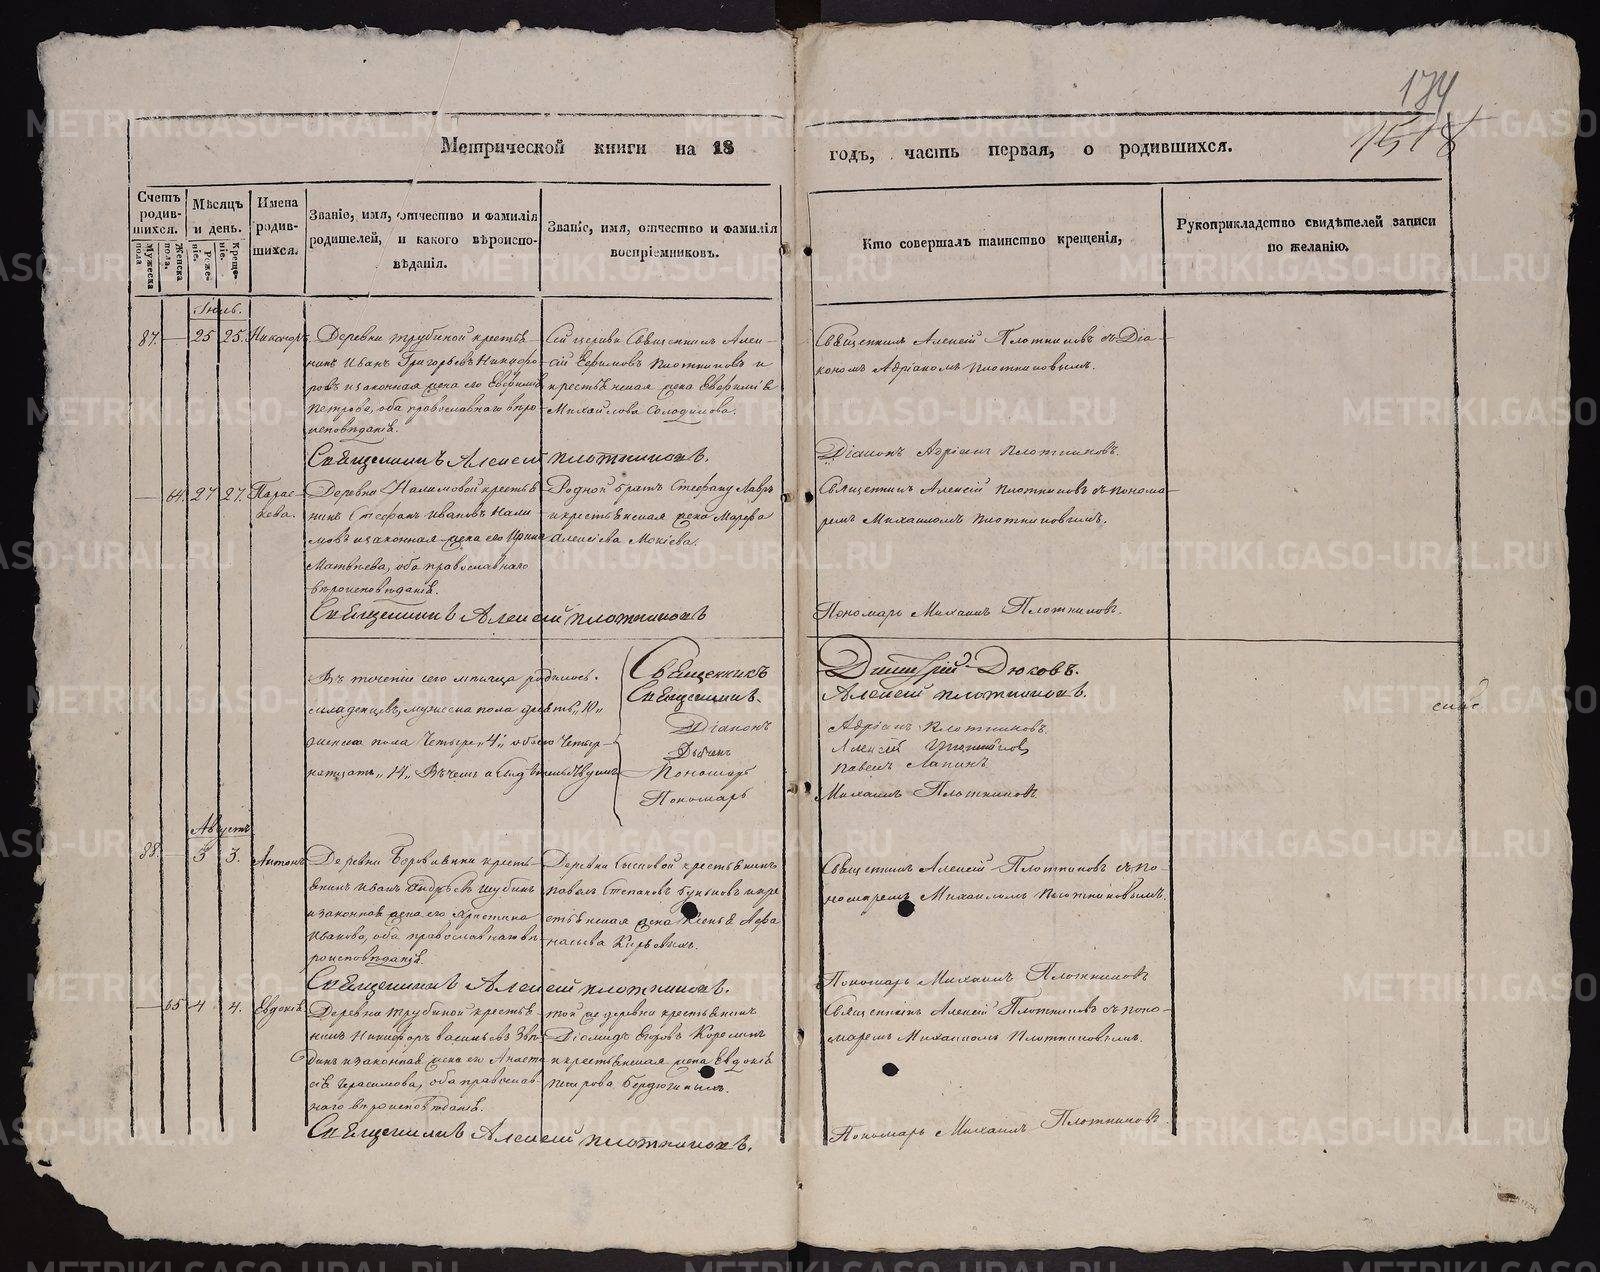 174
1518
Метрической книги на 18
годъ, часть первая, о родившихся.
Счетъ родившихся.
Мужеска пола
Женска пола.
Мѣсяцъ и день.
Рожденіе.
Крещеніе.
Имена родившихся.
Званіе, имя, отчество и фамилія
родителей, и какого вѣроиспо-
вѣданія.
Званіе, имя, отчество и фамилія
воспріемниковъ.
Кто совершалъ таинство крещенія,
Рукоприкладство свидѣтелей записи
по желанію.
Іюль.
87. — 25 25. Никаноръ.
Деревни Трубиной крестья-
нинъ Иванъ Григорьевъ Никифо-
ровъ и законная жена его Евфимія
Петрова, оба православнаго вѣро-
исповѣданія.
Сей церкви Священникъ Алек-
сій Ефимовъ Плотниковъ и
крестьянская жена Евфимія
Михайлова Солодилова.
Священникъ Алексій Плотниковъ съ Діа-
кономъ Адріаномъ Плотниковымъ.
Діаконъ Адріанъ Плотниковъ.
Священникъ Алексей Плотниковъ.
— 64. 27 27. Парас-
кева.
Деревни Налимовой крестья-
нинъ Стефанъ Ивановъ Нали-
мовъ и законная жена его Ирина
Матвѣева, оба православнаго
вѣроисповѣданія.
Родной братъ Стефану Лавръ
и крестьянская жена Марфа
Алексѣева Мокіева.
Священникъ Алексій Плотниковъ съ понома-
ремъ Михаиломъ Плотниковымъ.
Пономарь Михаилъ Плотниковъ.
Священникъ Алексей Плотниковъ
Въ теченіи сего мѣсяца родилось
младенцевъ, мужеска пола десять „10„
женска пола Четыре „4„ обоего Четыр-
надцать „14„
Священникъ Димитрій Дюковъ.
Священникъ Алексей Плотниковъ.
Діаконъ Адріанъ Плотниковъ.
Дьячекъ Алексей
Пономарь Павелъ Лапинъ
Пономарь Михаилъ Плотниковъ.
Августъ
88. — 3 3. Антонъ
Деревни Боровикина кресть-
янинъ Иванъ Андреевъ Шубинъ
и законная жена его Христина
Иванова, оба православнаго вѣ-
роисповѣданія.
Деревни Сысковой крестьянинъ
Павелъ Степановъ Буньковъ и кре-
стьянская жена Ксенія Афа-
насьева
Священникъ Алексей Плотниковъ съ по-
номаремъ Михаиломъ Плотниковымъ.
Пономарь Михаилъ Плотниковъ
Священникъ Алексей Плотниковъ.
— 65 4 4. Евдокія.
Деревни Трубиной крестья-
нинъ Никифоръ Васильевъ Звя-
гинъ и законная жена его Анаста-
сія Герасимова, оба православ-
наго вѣроисповѣданія.
Той же деревни крестьянинъ
Діомидъ Егоровъ Корелинъ
и крестьянская жена Евдокія
Петрова Бердюгиныхъ.
Священникъ Алексей Плотниковъ съ поно-
маремъ Михаиломъ Плотниковымъ.
Пономарь Михаилъ Плотниковъ
Священникъ Алексей Плотниковъ.
METRIKI.GASO-URAL.RU